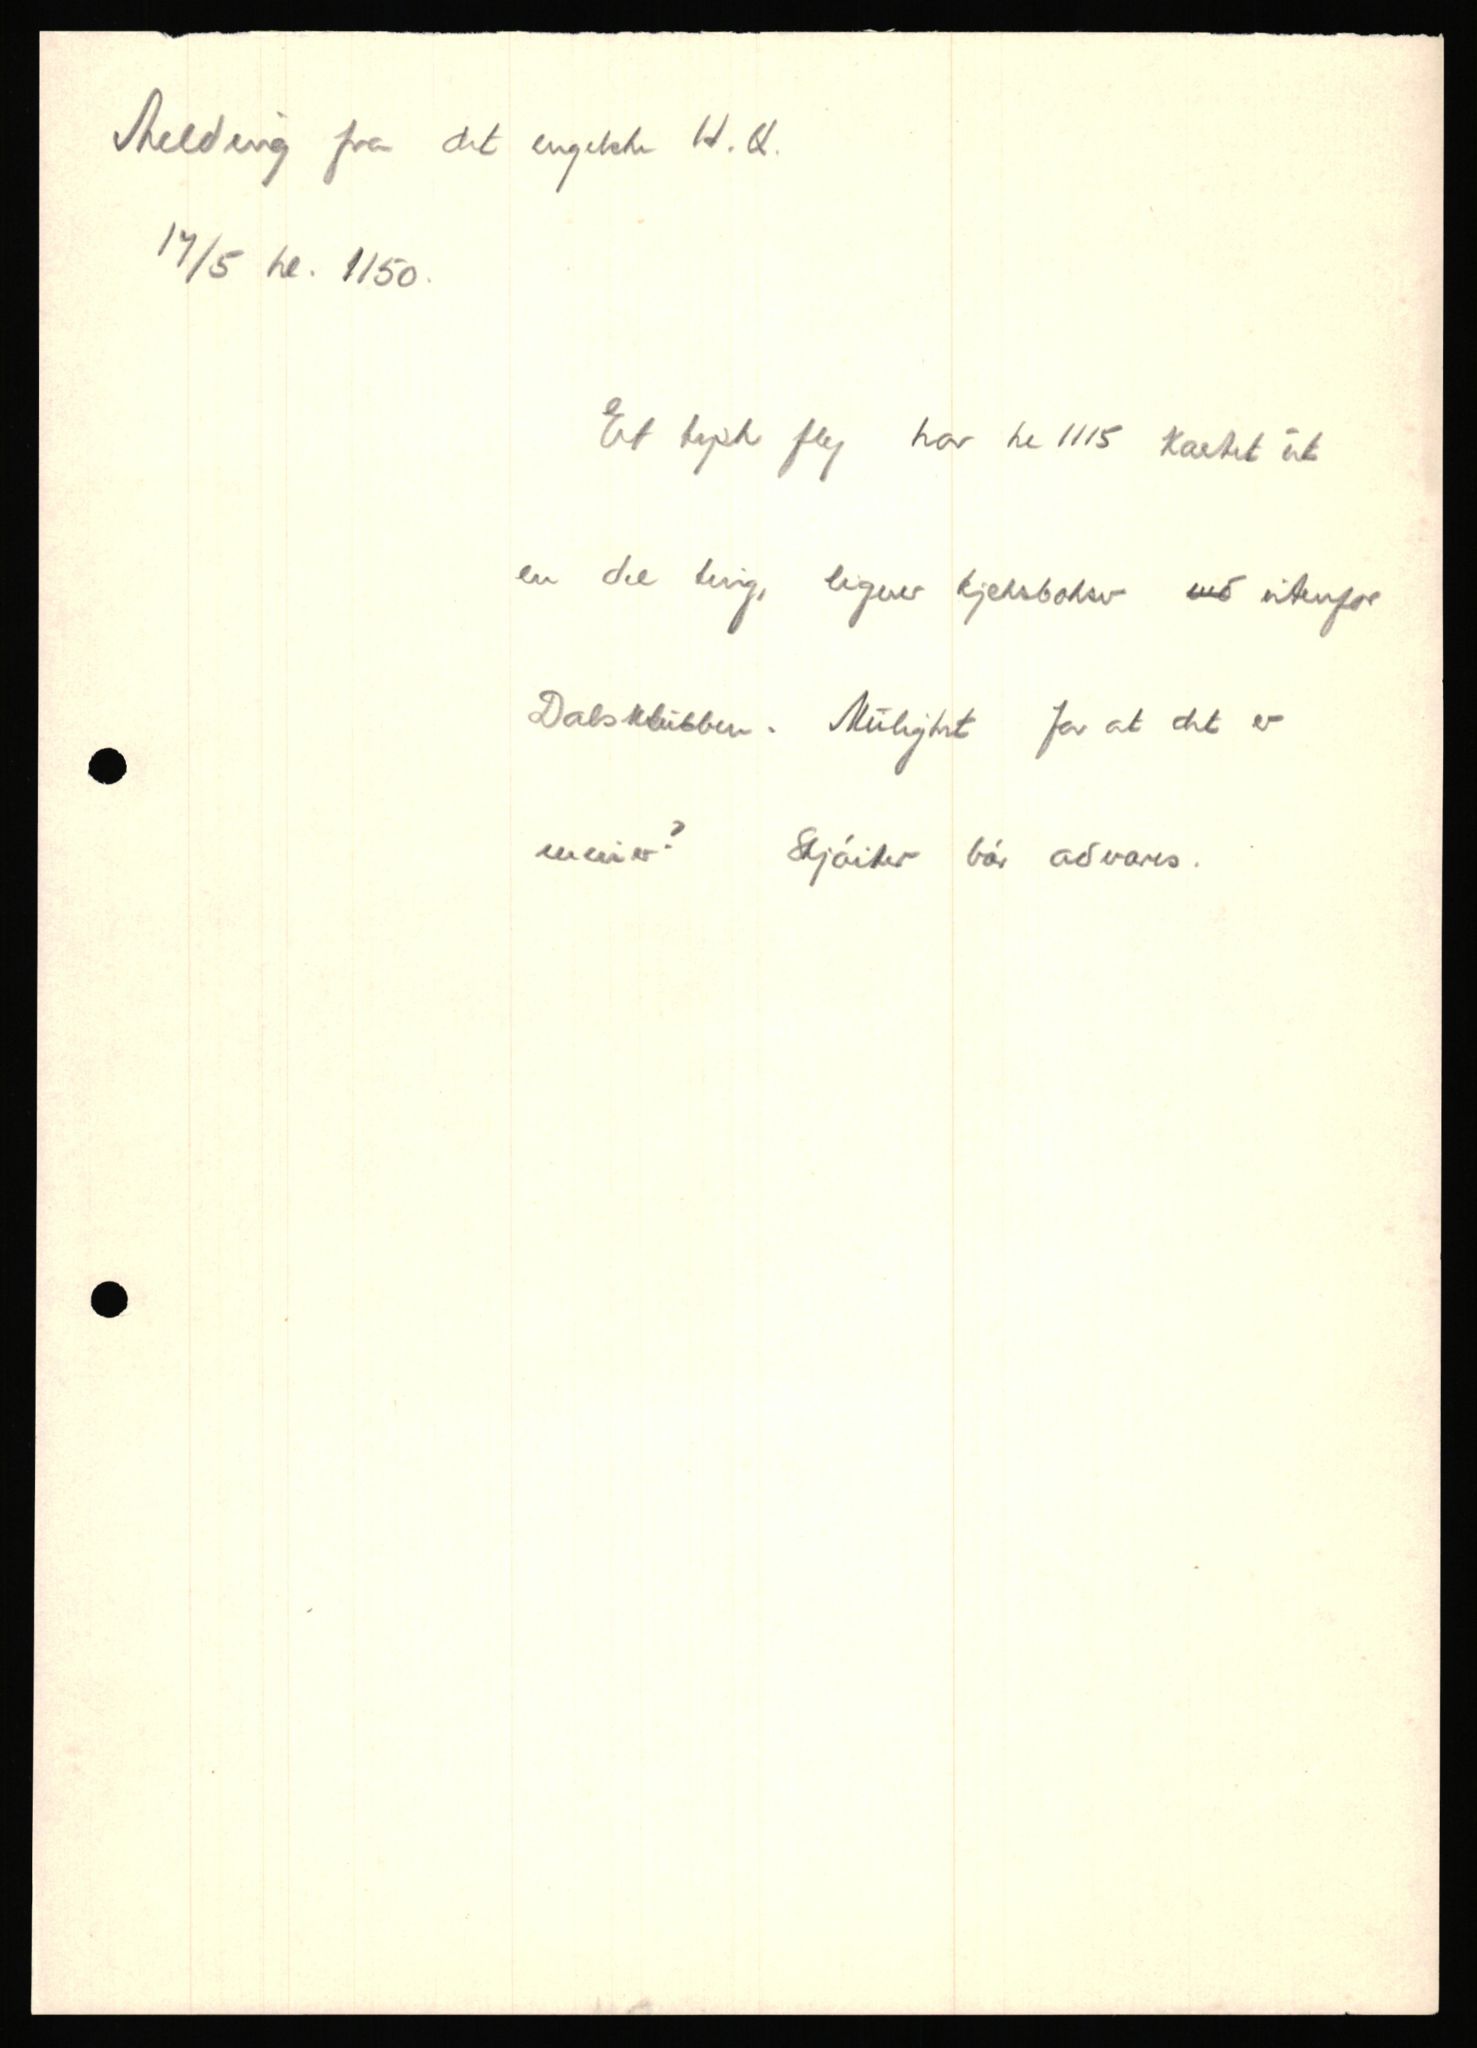 Melding fra det engelske H.Q.
17/5 kl. 1150.
Et tysk fly har kl 1115 kastet ut
en del ting, ligner kjeksbokser utenfor
Dalsklubben. Mulighet for at det er
miner? Skjøiter bør advares.